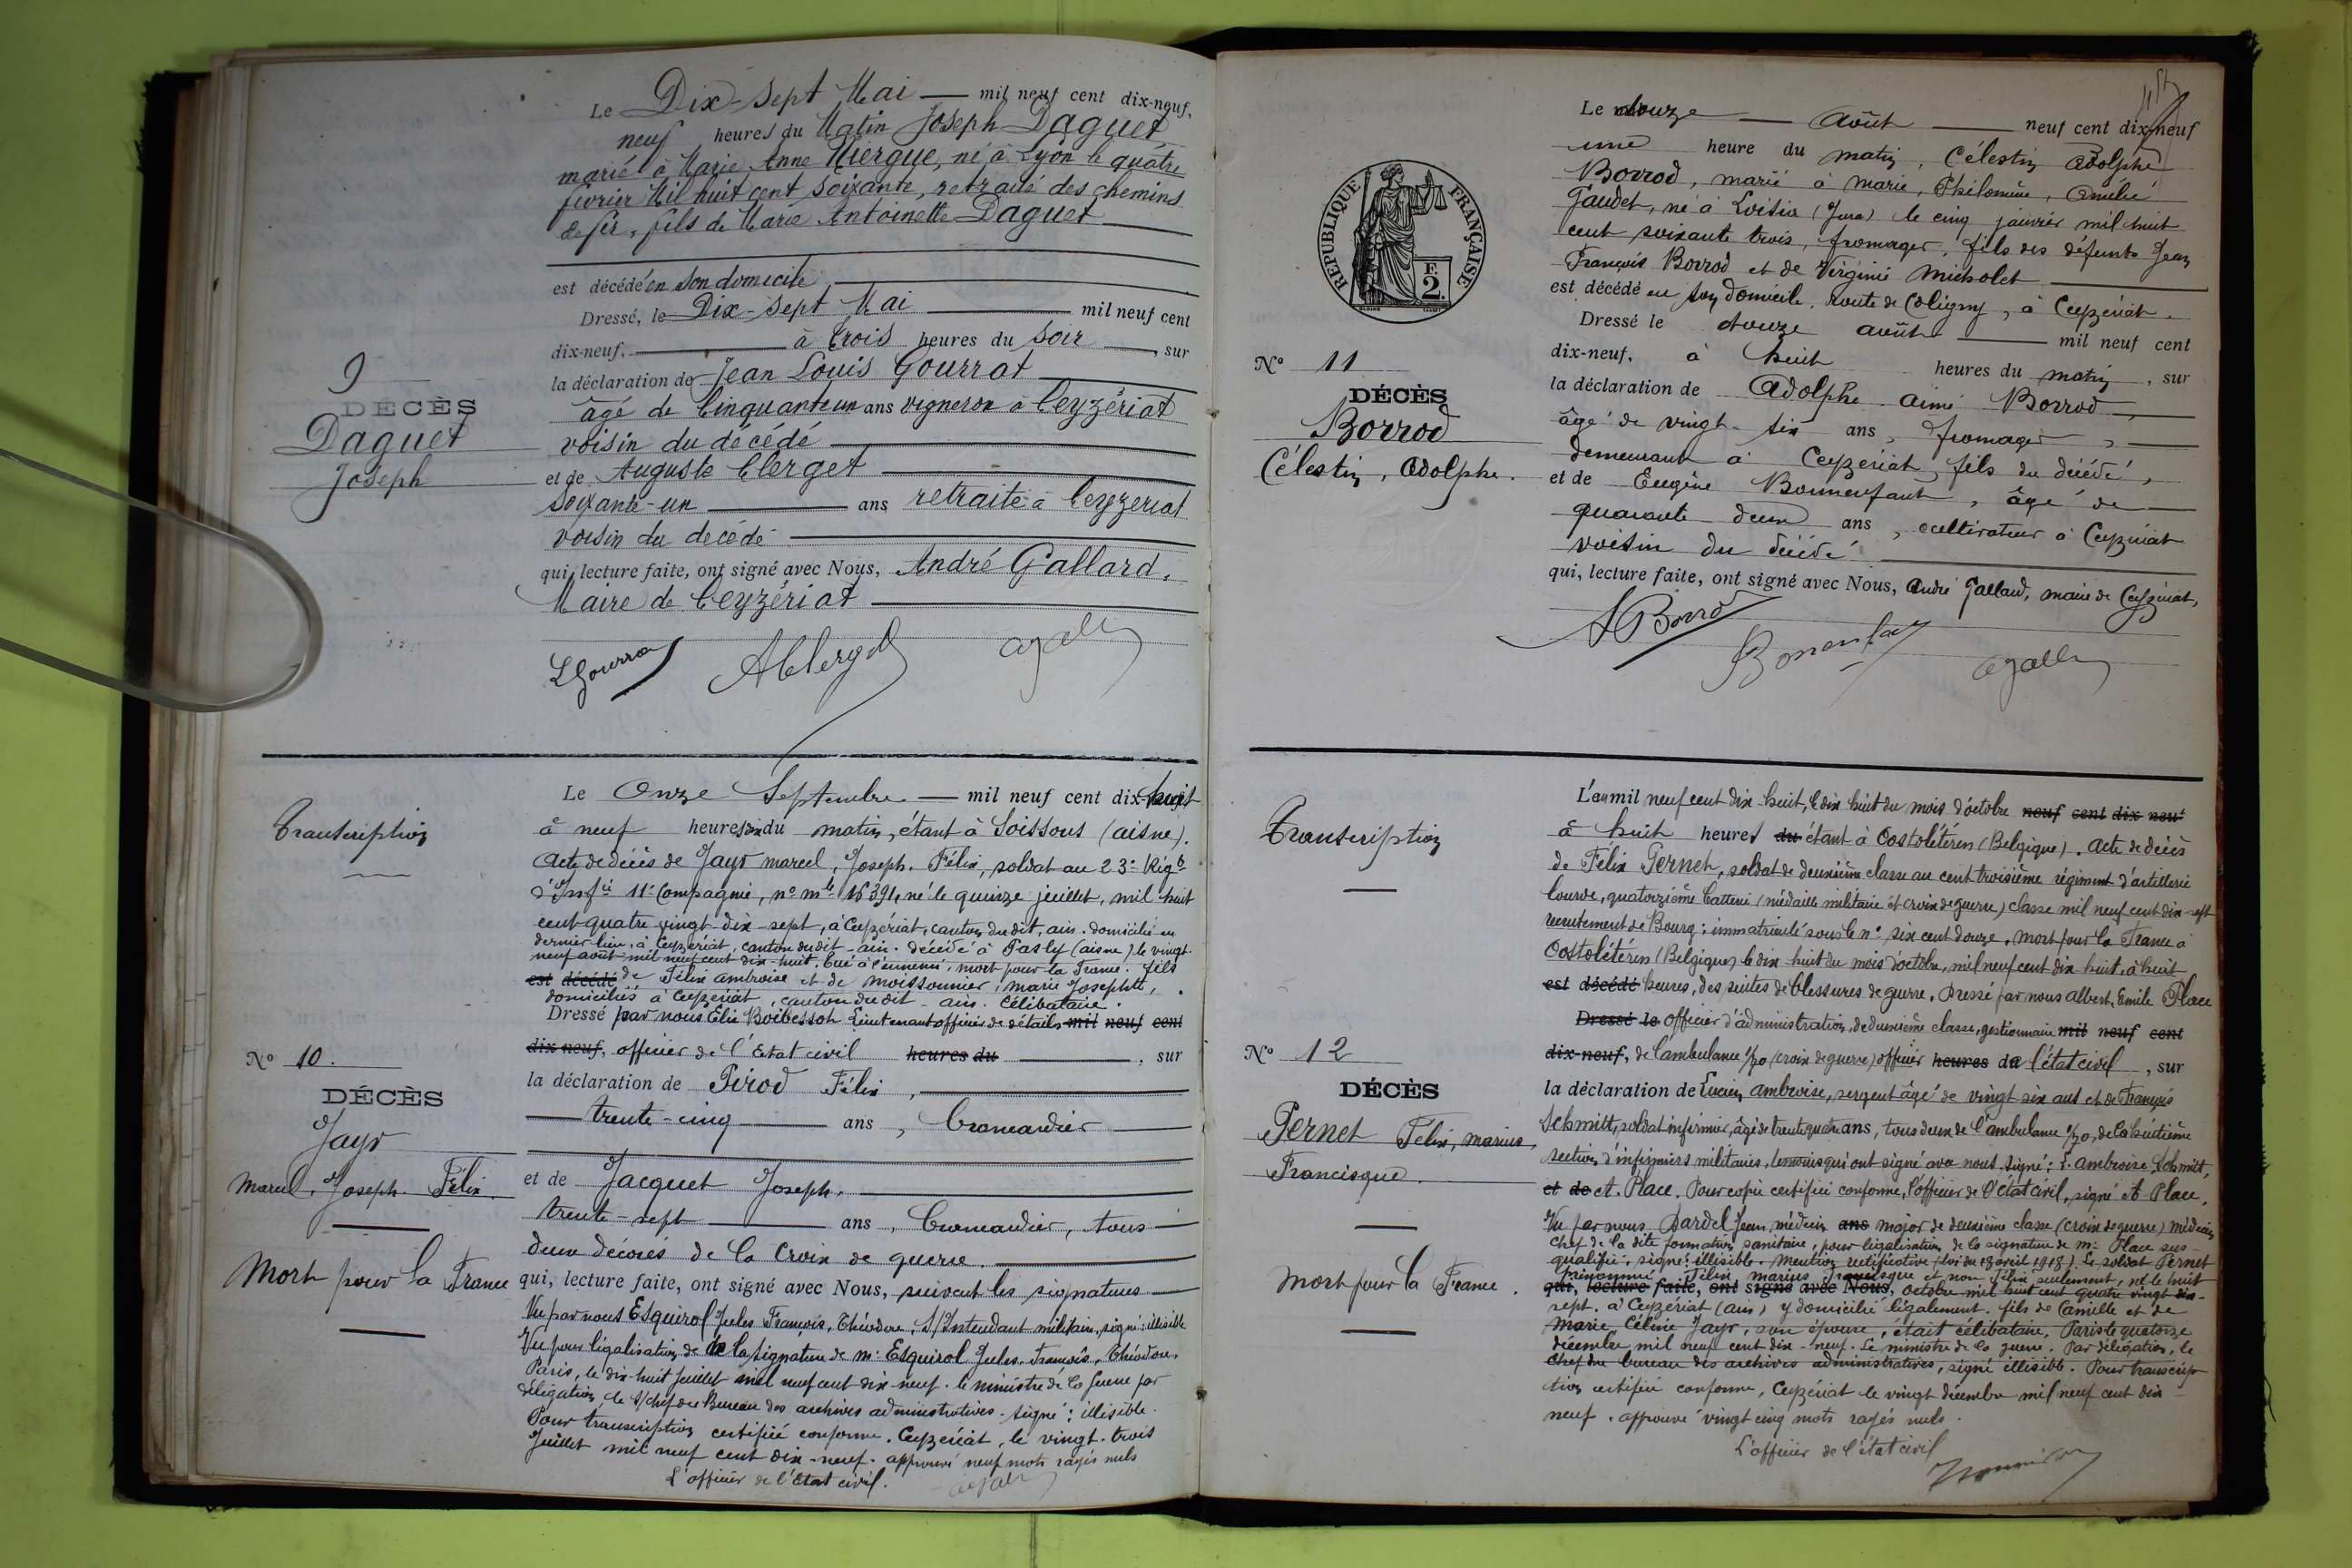 Le Dix-sept Mai — mil neuf cent dix-neuf,
neuf heures du Matin Joseph Daguet
marié à Marie, Anne Miergue, né à Lyon le quatre
février Mil huit cent soixante, retraité des chemins
de fer, fils de Marie Antoinette Daguet
est décédé en son domicile
Dressé, le Dix-sept Mai mil neuf cent
dix-neuf, à trois heures du soir, sur
la déclaration de Jean Louis Gourrat
âgé de Cinquante un ans vigneron à Ceyzériat
voisin du décédé
et de Auguste Clerget
soixante-un ans retraité à Ceyzeriat
voisin du décédé
qui, lecture faite, ont signé avec Nous, André Gallard,
Maire de Ceyzériat
9
DÉCÈS
Daguet
Joseph
LGourrat AClerget
Transcription
N° 10.
DÉCÈS
Jayr
Marcel, Joseph. Félix.
Mort pour la France
Le Onze Septembre — mil neuf cent dix-huit
à neuf heures du matin, étant à Soissons (aisne).
Acte de décès de Jayr marcel, Joseph. Félix, soldat au 23e Régt
d'Infie 11e Compagnie, n° mle 16391, né le quinze juillet, mil huit
cent quatre vingt dix-sept, à Ceyzériat, canton dudit, ain. domicilié en
dernier lieu, à Ceyzériat, canton dudit - ain. décédé à Pasly (aisne) le vingt-
neuf août mil neuf cent dix-huit. tué à l'ennemi, mort pour la France. fils
est décédé de Félix ambroise et de moissonnier, marie Josephte,
domiciliés à Ceyzériat, canton dudit - ain. Célibataire.
Dressé par nous Elie Boibessot Lieutenant officier de détails mil neuf cent
dix-neuf, officier de l'Etat civil heures du , sur
la déclaration de Pirod Félix,
trente-cinq ans, brancardier
et de Jacquet Joseph,
trente-sept ans, brancardier, tous
deux décorés de la Croix de guerre.
qui, lecture faite, ont signé avec Nous, suivent les signatures
Vu par nous Esquirol Jules François, Théodore, S/Intendant militaire, signé: illisible
Vu pour légalisation de la signature de Mr Esquirol Jules, François, Théodore.
Paris, le dix-huit juillet mil neuf cent dix-neuf. le ministre de la Guerre par
délégation, le S/chef du Bureau des archives administratives. signé: illisible.
Pour transcription certifiée conforme. Ceyzériat, le vingt-trois
Juillet mil neuf cent dix-neuf. approuvé neuf mots rayés nuls
L'officier de l'état civil.
Le douze août neuf cent dix-neuf
une heure du matin, Célestin Adolphe
Borrod, marié à marie, Philomène, Amélie
Gaudet, né à Loisia (Jura) le cinq janvier mil huit
cent soixante trois, fromager, fils des défunts Jean
François Borrod et de Virginie Micholet
est décédé en son domicile, Route de Coligny, à Ceyzériat.
Dressé le douze août mil neuf cent
dix-neuf, à huit heures du matin, sur
la déclaration de Adolphe aimé Borrod,
âgé de vingt-six ans, fromager,
demeurant à Ceyzériat, fils du décédé,
et de Eugène Bonnenfant, âgé de
quarante deux ans, cultivateur à Ceyzériat
voisin du décédé
qui, lecture faite, ont signé avec Nous, André Galland, maire de Ceyzériat,
RÉPUBLIQUE FRANÇAISE
F.
2.
N° 11
DÉCÈS
Borrod
Célestin, Adolphe.
ABorrod
Transcription
N° 12
DÉCÈS
Pernet Félix, marius,
Francisque.
Mort pour la France.
L'an mil neuf cent dix-huit, le dix huit du mois d'octobre neuf cent dix neuf
à huit heures du étant à Oostoléteren (Belgique). Acte de décès
de Félix Pernet, soldat de deuxième classe au cent troisième régiment d'artillerie
lourde, quatorzième batterie (médaille militaire et croix de guerre) classe mil neuf cent dix-sept
recrutement de Bourg; immatriculé sous le n° six cent douze, mort pour la France à
Oostoléteren (Belgique) le dix huit du mois d'octobre, mil neuf cent dix huit, à huit
est décédé heures, des suites de blessures de guerre. Dressé par nous Albert, Emile Place
Dressé le officier d'administration, de deuxième classe, gestionnaire mil neuf cent
dix-neuf, de l'ambulance 1/70 (croix de guerre) officier heures de l'état civil, sur
la déclaration de Lucien ambroise, sergent âgé de vingt six ans et de François
Schmitt, soldat infirmier, âgé de trente quatre ans, tous deux de l'ambulance 1/70, de la huitième
section d'infirmiers militaires, témoins qui ont signé avec nous. Signé: L. ambroise, Schmitt,
et de A. Place. Pour copie certifiée conforme, l'officier de l'état civil, signé A. Place.
Vu par nous Dardel Jean, médecin ans major de deuxième classe (croix de guerre) médecin
chef de la dite formation sanitaire, pour légalisation de la signature de Mr Place sus-
qualifié, signé: illisible. Mention rectificative (loi du 18 avril 1918). Le soldat Pernet
prénommé Félix marius Francisque et non Félix seulement, né le huit
qui, lecture faite, ont signé avec Nous, octobre mil huit cent quatre vingt dix-
sept. à Ceyzériat (ain) y domicilié légalement. fils de Camille et de
Marie Céline Jayr, son épouse, était célibataire. Paris le quatorze
décembre mil neuf cent dix-neuf. Le ministre de la guerre. Par délégation, le
chef du bureau des archives administratives, signé illisible. Pour transcrip
tion certifiée conforme, Ceyzériat le vingt décembre mil neuf cent dix-
neuf. approuvé vingt cinq mots rayés nuls.
L'officier de l'état civil